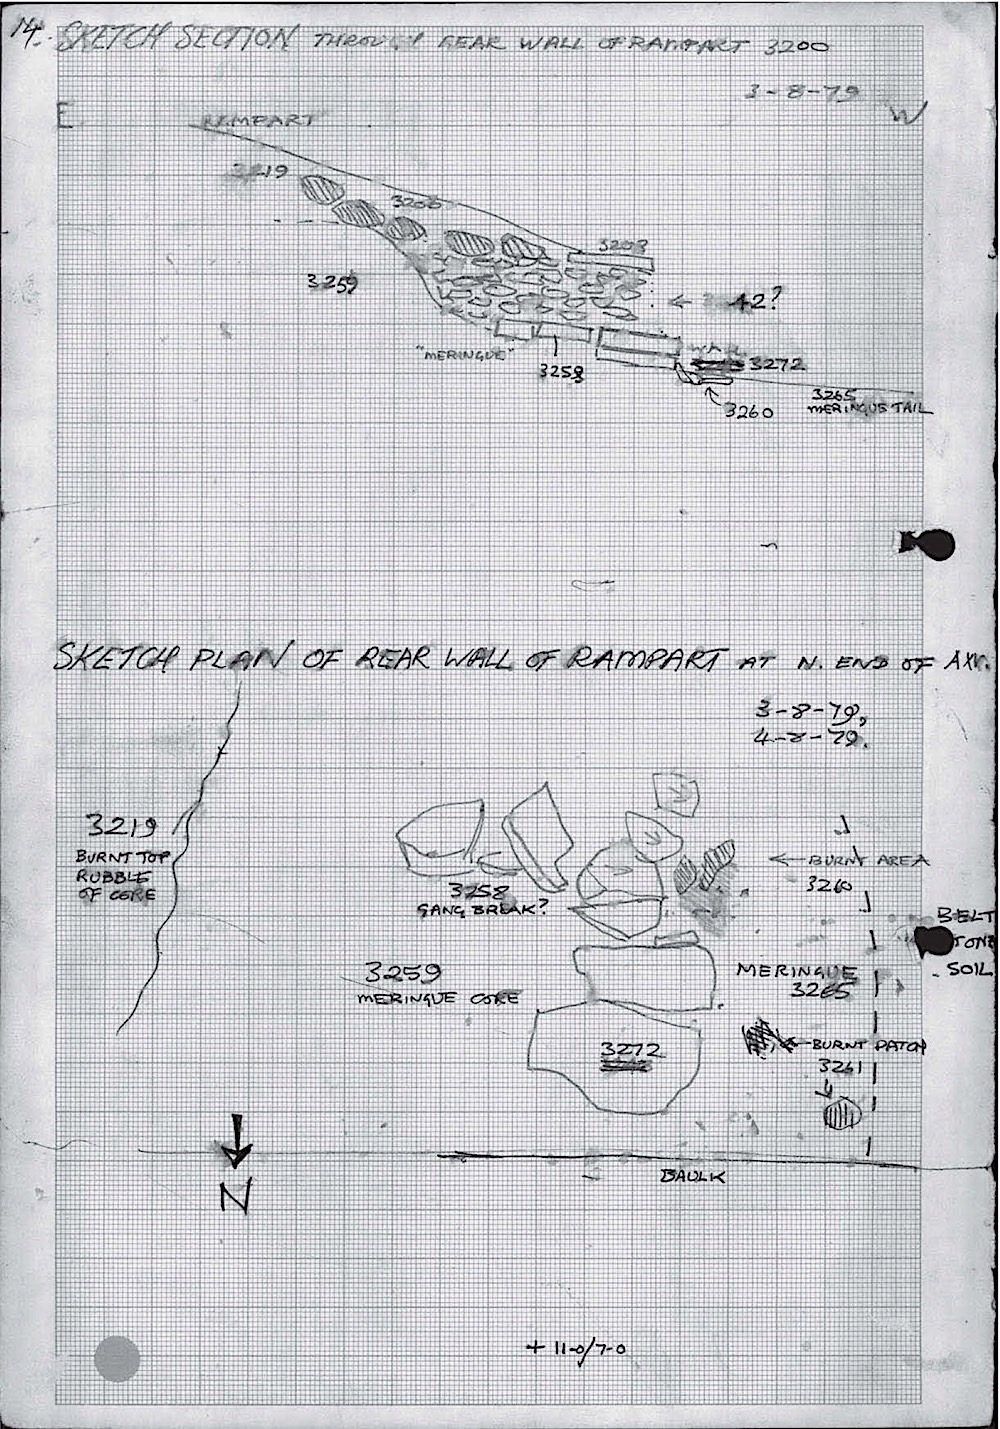 14. SKETCH SECTION THROUGH REAR WALL OF RAMPART 3200
3-8-79
E
W
RAMPART
3219
3200
3203
3259
← 42?
"MERINGUE"
3258
3272
3260
3265
MERINGUE TAIL
SKETCH PLAN OF REAR WALL OF RAMPART AT N. END OF AXV.
3-8-79,
4-8-79.
3219
BURNT TOP
RUBBLE
OF CORE
← BURNT AREA
3260
3258
GANG BREAK?
BELT
SOIL
3259
MERINGUE CORE
MERINGUE
3265
3272
← BURNT PATCH
3261
N
BAULK
+ 11-0/7-0